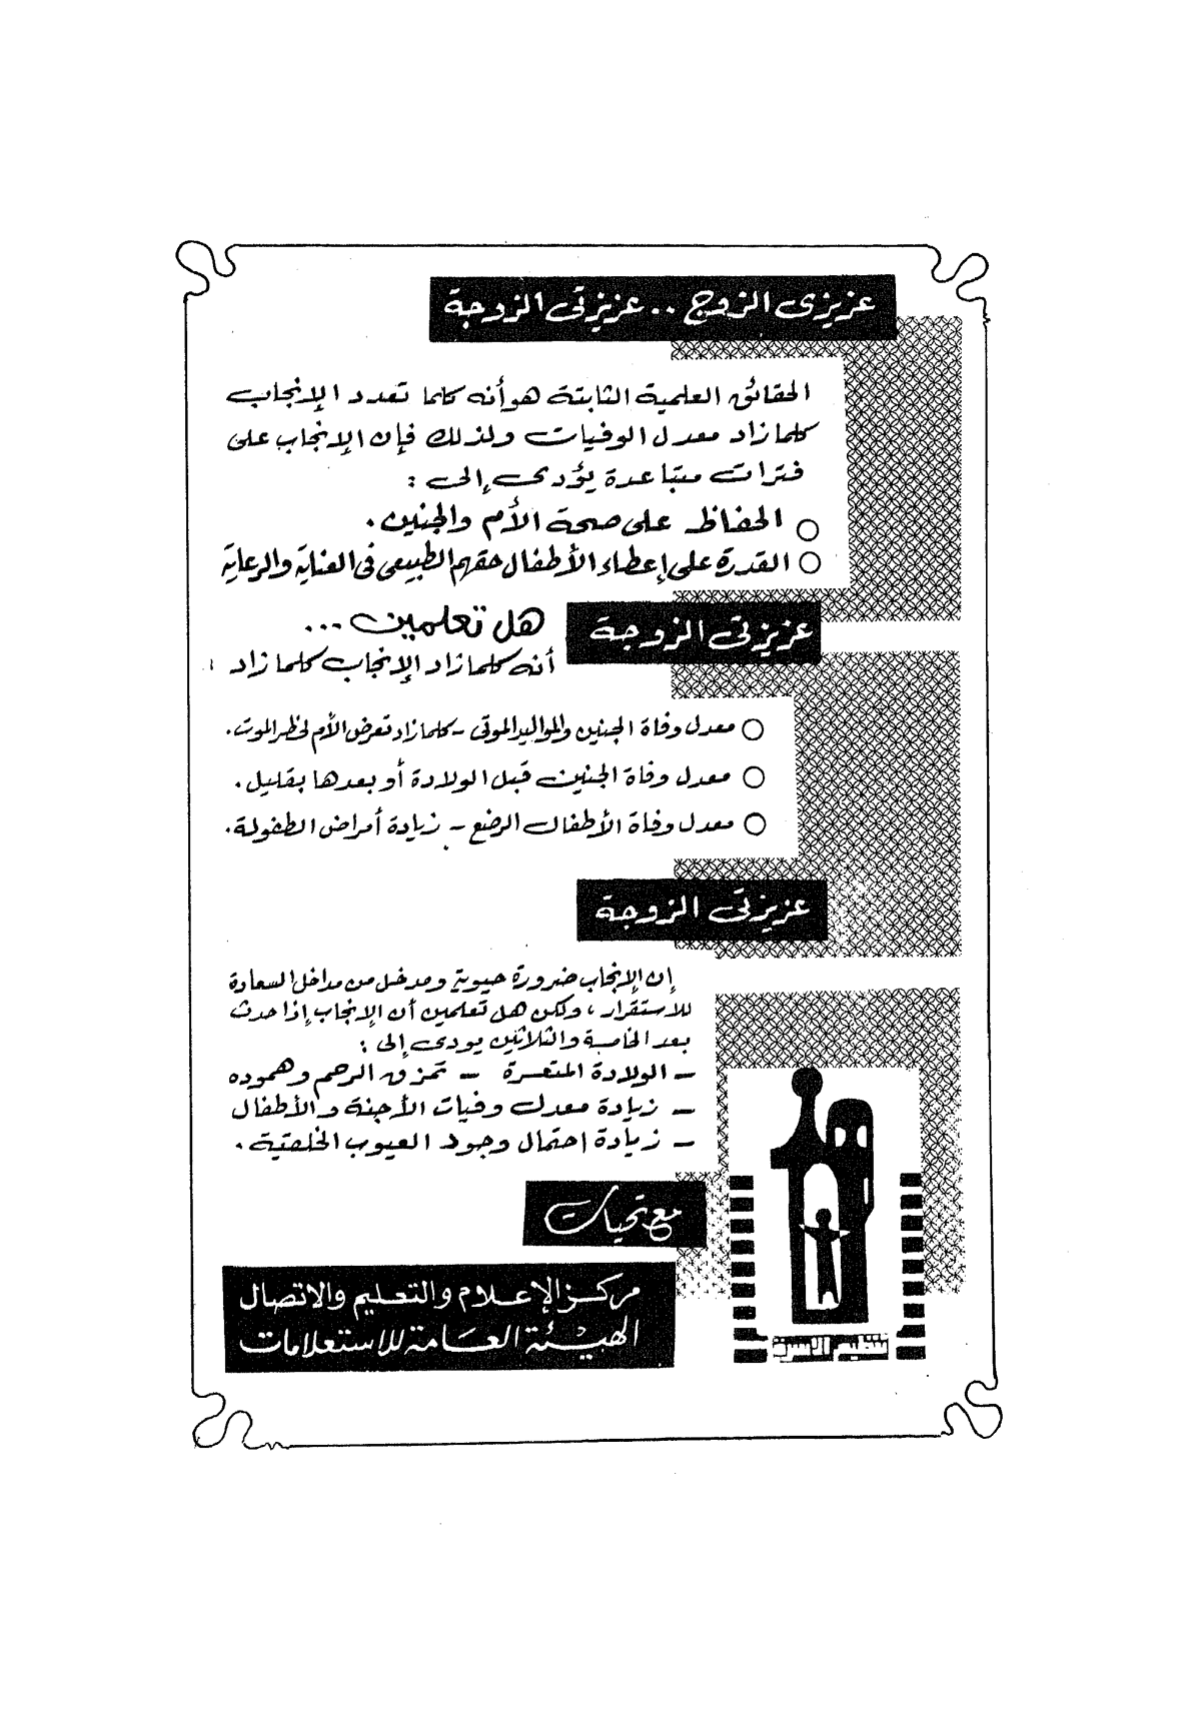 عزيزى الزوج .. عزيزتى الزوجة
الحقائق العلمية الثابتة هو أنه كلما تعدد الإنجاب
كلما زاد معدل الوفيات ولذلك فإن الإنجاب على
فترات متباعدة يؤدى إلى :
○ الحفاظ على صحة الأم والجنين .
○ القدرة على إعطاء الأطفال حقهم الطبيعى فى العناية والرعاية
عزيزتى الزوجة هل تعلمين ...
أنه كلما زاد الإنجاب كلما زاد :
○ معدل وفاة الجنين والمواليد الموتى - كلما زاد تعرض الأم لخطر الموت .
○ معدل وفاة الجنين قبل الولادة أو بعدها بقليل .
○ معدل وفاة الأطفال الرضع - زيادة أمراض الطفولة .
عزيزتى الزوجة
إن الإنجاب ضرورة حيوية ومدخل من مداخل السعادة
للاستقرار ، ولكن هل تعلمين أن الإنجاب إذا حدث
بعد الخامسة والثلاثين يودى إلى :
- الولادة المتعسرة - تمزق الرحم وهموده
- زيادة معدل وفيات الأجنة والأطفال
- زيادة احتمال وجود العيوب الخلقية .
مع تحيات
مركز الإعلام والتعليم والاتصال
الهيئة العامة للاستعلامات
تنظيم الاسرة